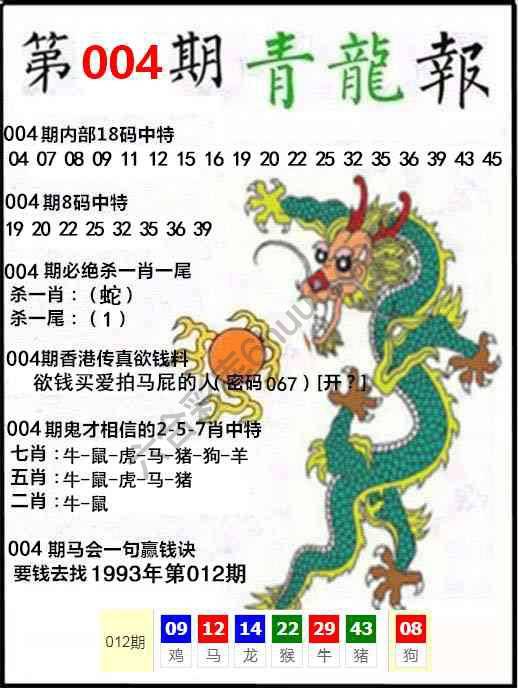 第004期青龍報
004期内部18码中特
04 07 08 09 11 12 15 16 19 20 22 25 32 35 36 39 43 45
004期8码中特
19 20 22 25 32 35 36 39
004 期必绝杀一肖一尾
杀一肖：（蛇）
杀一尾：（1）
004期香港传真欲钱料
欲钱买爱拍马屁的人(密码067)[开？]
004期鬼才相信的2-5-7肖中特
七肖：牛-鼠-虎-马-猪-狗-羊
五肖：牛-鼠-虎-马-猪
二肖：牛-鼠
004 期马会一句赢钱诀
要钱去找 1993年第012期
012期 09 12 14 22 29 43 08
鸡 马 龙 猴 牛 猪 狗